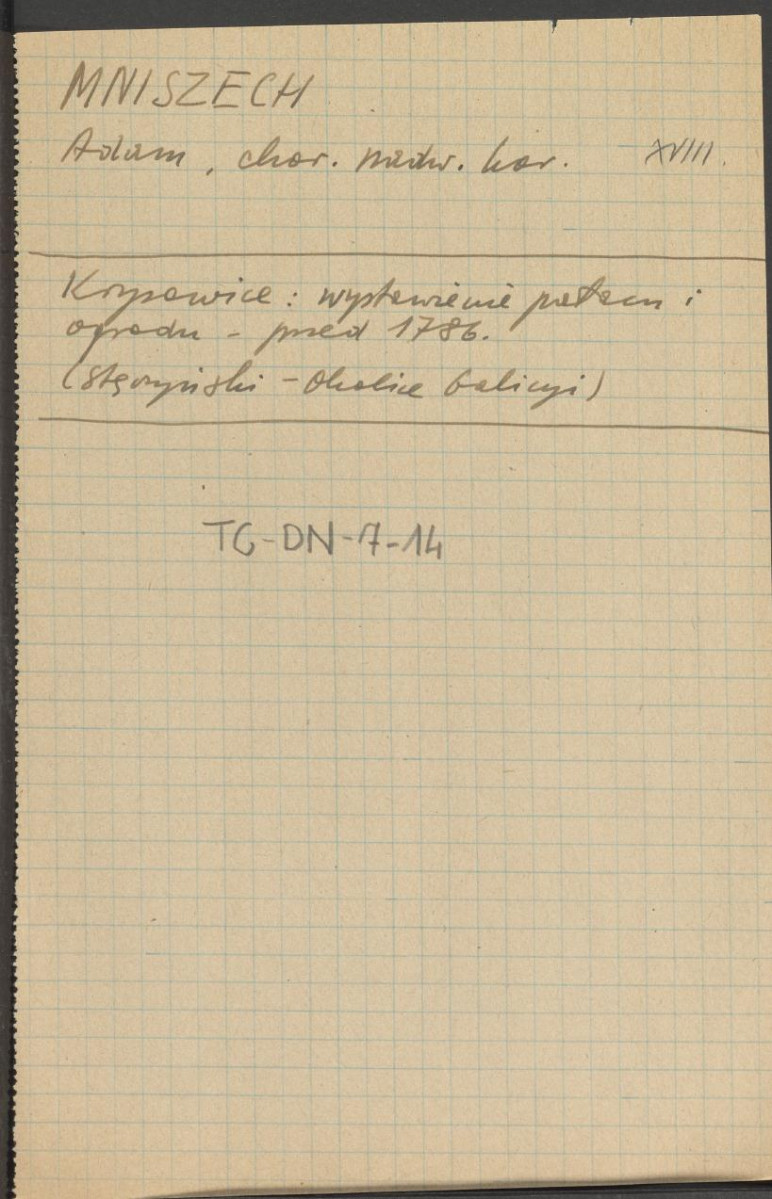 MNISZECH
Adam, chor. nadw. kor. XVIII.
Krysowice: wystawienie pałacu i
ogrodu - przed 1786.
(Stęczyński - Okolice Galicyi)
TG-DN-7-14